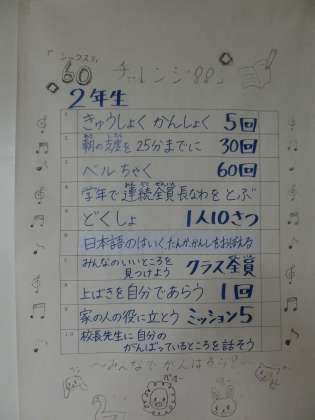 「シックスティ
60 チャレンジ88」
2年生
1 きゅうしょく かんしょく 5回
2 朝の支度を25分までに 30回
3 ベルちゃく 60回
4 学年で連続全員長なわをとぶ
5 どくしょ 1人10さつ
6 日本語のはいくたんかかんしをおぼえる
7 みんなのいいところを
見つけよう クラス全員
8 上ばきを自分であらう 1回
9 家の人の役に立とう ミッション5
10 校長先生に自分の
がんばっているところを話そう
〜みんなでがんばろう〜